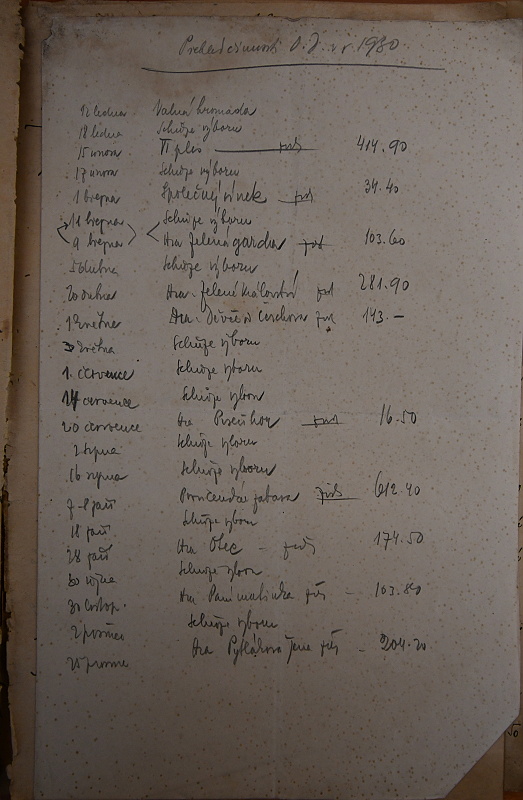 Přehled činnosti O.J. v r. 1930
12 ledna Valná hromada
18 ledna Schůze výboru
15 února II ples 414.90
17 února Schůze výboru
1 března Společný vínek 34.40
11 března Schůze výboru
9 března Hra Zelená garda 103.60
5 dubna Schůze výboru
20 dubna Hra: Zelené Království 281.90
1 května Hra: Děvče 143.—
3 května Schůze výboru
1. července Schůze výboru
14 července Schůze výboru
20 července Hra 16.50
2 srpna Schůze výboru
16 srpna Schůze výboru
7-8 září zábava 612.40
18 září Schůze výboru
28 září Hra Otec 174.50
30 října Schůze výboru
30 listop. Hra Paní matinka 103.80
2 prosince Schůze výboru
25 prosince Hra Pytlákova žena 204.20